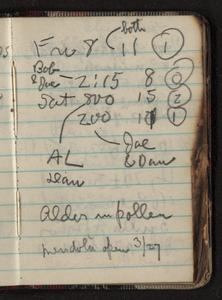 both
Fri 8 11 1
Bob
& Jae 2:15 8 0
Sat 800 15 2
200 10 1
Jae
& Dan
AL
Dean
Alder in pollen
open 3/27